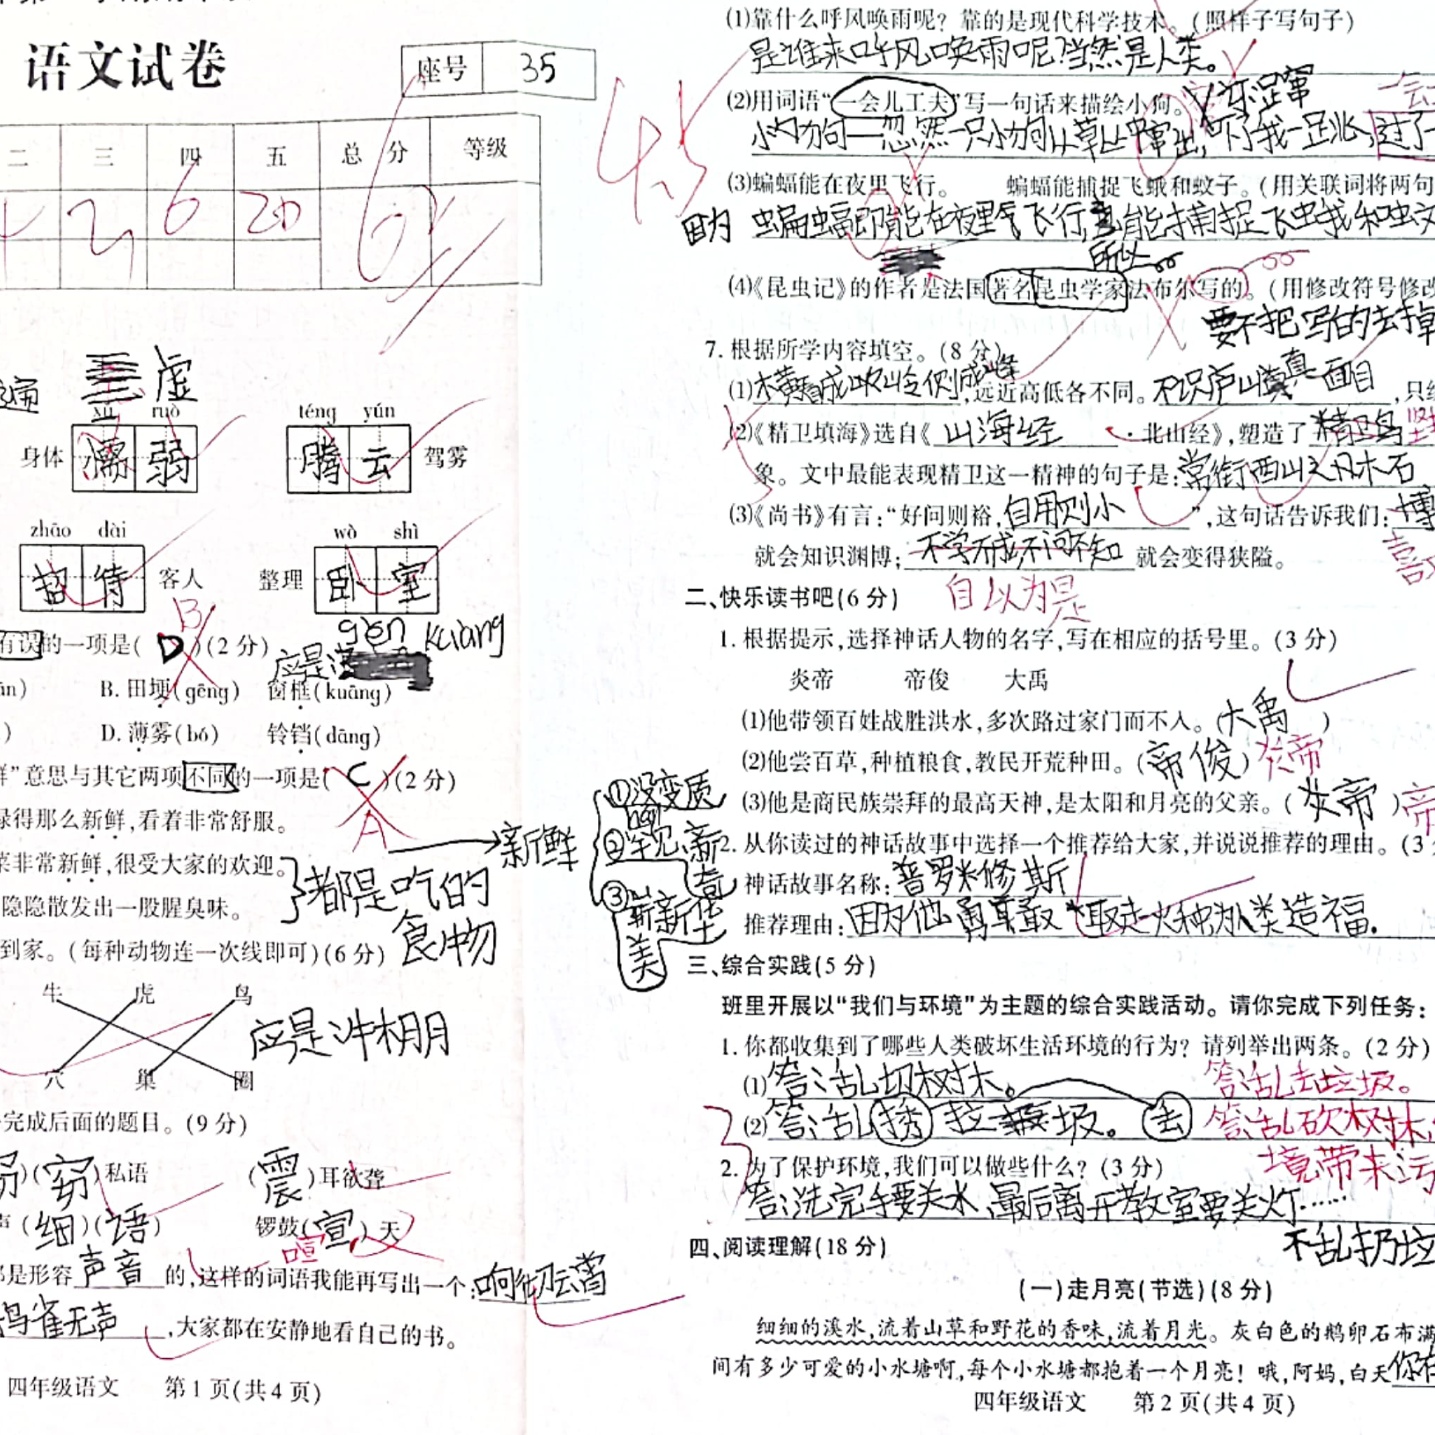 语文试卷
座号 35
二 三 四 五 总分 等级
6 20
虚
xū ruò téng yún
身体 弱 腾云 驾雾
zhāo dài wò shì
招待 客人 整理 卧室
B
有误的一项是( D )(2分)
应是 gěn kuàng
B.田埂(gěng) 窗框(kuāng)
D.薄雾(bó) 铃铛(dāng)
”意思与其它两项不同的一项是( C )(2分)
得那么新鲜,看着非常舒服。
A
菜非常新鲜,很受大家的欢迎。
新鲜
隐隐散发出一股腥臭味。
都是吃的食物
①没变质
②罕见、新奇
③
美
到家。(每种动物连一次线即可)(6分)
牛 虎 鸟
应是 牛棚
穴 巢 圈
完成后面的题目。(9分)
(窃)私语 (震)耳欲聋
声(细)(语) 锣鼓(宣)天
喧
是形容声音的,这样的词语我能再写出一个:响彻云霄
鸦雀无声,大家都在安静地看自己的书。
四年级语文 第1页(共4页)
4.5
(1)靠什么呼风唤雨呢? 靠的是现代科学技术。(照样子写句子)
是谁来呼风唤雨呢?当然是人类。
(2)用词语“一会儿工夫”写一句话来描绘小狗。
(3)蝙蝠能在夜里飞行。 蝙蝠能捕捉飞蛾和蚊子。(用关联词将两句
因为 蝙蝠能在夜里飞行 能捕捉飞蛾和蚊
所以
(4)《昆虫记》的作者是法国著名昆虫学家法布尔写的。(用修改符号修改
要把写的去掉
7.根据所学内容填空。(8分)
(1)横看成岭侧成峰,远近高低各不同。不识庐山真面目,只缘
(2)《精卫填海》选自《山海经·北山经》,塑造了精卫鸟
象。文中最能表现精卫这一精神的句子是:常衔西山之木石
(3)《尚书》有言:“好问则裕,自用则小”,这句话告诉我们:博
就会知识渊博;不学不成不问不知就会变得狭隘。
自以为是
二、快乐读书吧(6分)
1.根据提示,选择神话人物的名字,写在相应的括号里。(3分)
炎帝 帝俊 大禹
(1)他带领百姓战胜洪水,多次路过家门而不入。(大禹)
(2)他尝百草,种植粮食,教民开荒种田。(帝俊) 炎帝
(3)他是商民族崇拜的最高天神,是太阳和月亮的父亲。(炎帝) 帝
2.从你读过的神话故事中选择一个推荐给大家,并说说推荐的理由。(3
神话故事名称:普罗米修斯
推荐理由:因为他勇敢取走火种为人类造福.
三、综合实践(5分)
班里开展以“我们与环境”为主题的综合实践活动。请你完成下列任务:
1.你都收集到了哪些人类破坏生活环境的行为? 请列举出两条。(2分)
(1)答:乱切树木。 答:乱丢垃圾。
(2)答:乱 垃圾。 丢 答:乱砍树木,
境带来污
2.为了保护环境,我们可以做些什么? (3分)
答:洗完手要关水、最后离开教室要关灯……
不乱扔垃
四、阅读理解(18分)
(一)走月亮(节选)(8分)
细细的溪水,流着山草和野花的香味,流着月光。灰白色的鹅卵石布满
间有多少可爱的小水塘啊,每个小水塘都抱着一个月亮!哦,阿妈,白天你在
四年级语文 第2页(共4页)